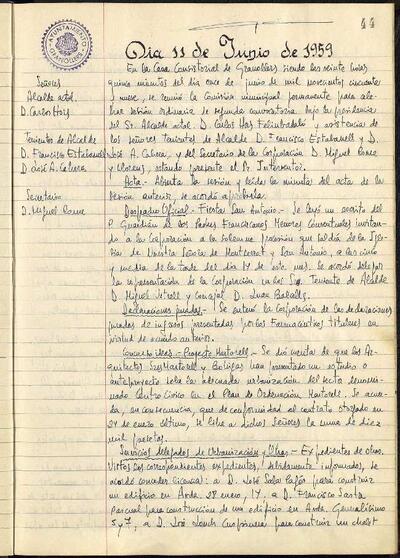 44
AYUNTAMIENTO
Dia 11 de Junio de 1959
En la Casa Consistorial de Granollers siendo las veinte horas
quince minutos del dia once de junio de mil novecientos cincuenta
y nueve, se reunió la Comisión municipal permanente para cele-
brar sesión ordinaria de segunda convocatoria, bajo la presidencia
Señores
Alcalde actal.
D. Carlos Hoz
del Sr. Alcalde actal. D. Carlos Hoz y asistencia de
los señores tenientes de Alcalde D. Francisco Estabanell y D.
Tenientes de Alcalde
D. Francisco Estabanell
D. José A. Cabrera
José A. Cabrera, y del Secretario de la Corporación D. Miguel
Llorens, estando presente el Sr. Interventor.
Secretario
D. Miguel
Acta.- Abierta la sesión y leída la minuta del acta de la
sesión anterior, se acordó aprobarla.
Despacho Oficial.- Fiestas San Antonio.- Se leyó un escrito del
P. Guardián de los Padres Franciscanos Menores Conventuales invitan-
do a la Corporación a la solemne procesión que saldrá de la Igle-
sia de Nuestra Señora de Montserrat y San Antonio, a las cinco
y media de la tarde del día 14 de este mes. Se acordó delegar
la representación de la Corporación en los Sres. Teniente de Alcalde
D. Miguel y concejal D. Juan
Declaraciones juradas.- Se enteró la Corporación de las declaraciones
juradas de ingresos presentadas por los Farmacéuticos titulares en
virtud de acuerdo anterior.
Concurso ideas.- Proyecto Martorell.- Se dió cuenta de que los Ar-
quitectos Sres. Martorell y Bohigas han presentado un estudio o
anteproyecto sobre la adecuada urbanización del sector denomi-
nado Centro Cívico en el Plan de Ordenación Martorell. Se acuer-
da, en consecuencia, que de conformidad al contrato otorgado en
24 de enero último, se libre a dichos señores la suma de diez
mil pesetas.
Servicios delegados de Urbanización y Obras.- Expedientes de obras.
Vistos los correspondientes expedientes, debidamente informados, se
acordó conceder licencia: a D. José Sala para construir
un edificio en Avda. 28 enero, 17, a D. Francisco
Pascual para construcción de un edificio en Avda. Generalísimo
5 y 7, a D. José para construir un chalet